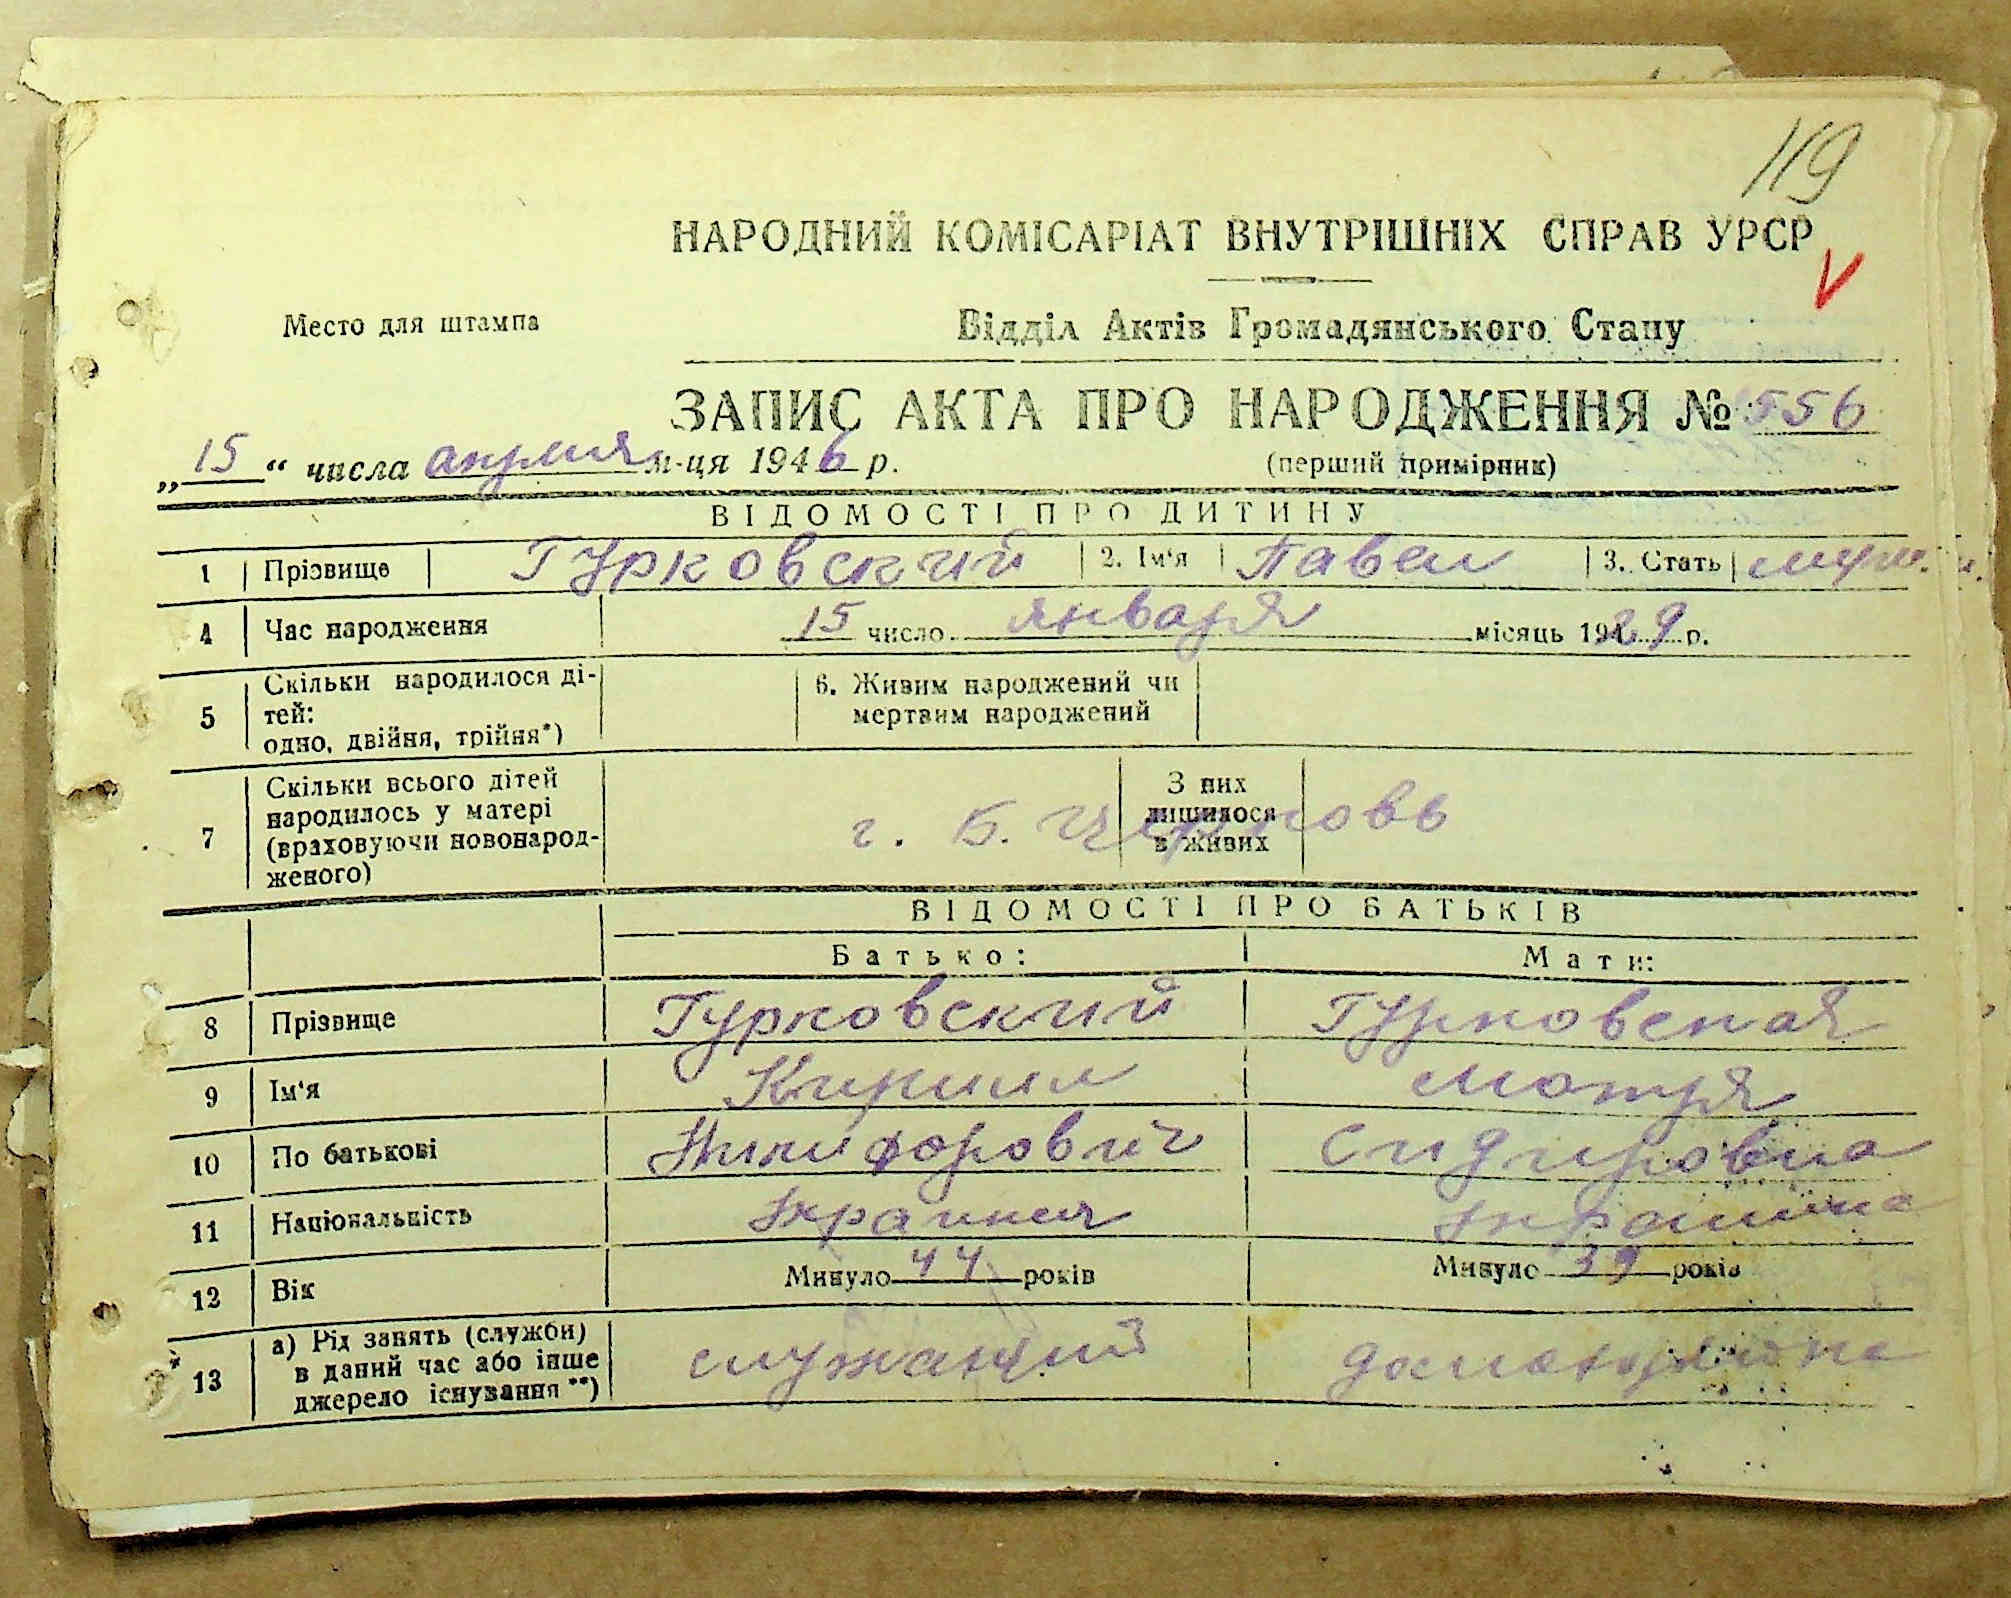 119
НАРОДНИЙ КОМІСАРІАТ ВНУТРІШНІХ СПРАВ УРСР
V
Место для штампа
Відділ Актів Громадянського Стану
ЗАПИС АКТА ПРО НАРОДЖЕННЯ № 556
„15“ числа апреля м-ця 1946 р.
(перший примірник)
ВІДОМОСТІ ПРО ДИТИНУ
1 Прізвище Гурковский 2. Ім'я Павел 3. Стать муж.
4 Час народження 15 число января місяць 1929 р.
5 Скільки народилося ді-
тей:
одно, двійня, трійня*)
6. Живим народжений чи
мертвим народжений
7 Скільки всього дітей
народилось у матері
(враховуючи новонарод-
женого)
З них
лишилося
в живих
г. Б. Церковь
ВІДОМОСТІ ПРО БАТЬКІВ
Батько: Мати:
8 Прізвище Гурковский Гурковская
9 Ім'я Кирилл Мотря
10 По батькові Никифорович Сидировна
11 Національність Украинец Украинка
12 Вік Минуло 44 років Минуло 39 років
13 а) Рід занять (служби)
в даний час або інше
джерело існування**)
служащий домохозяйка